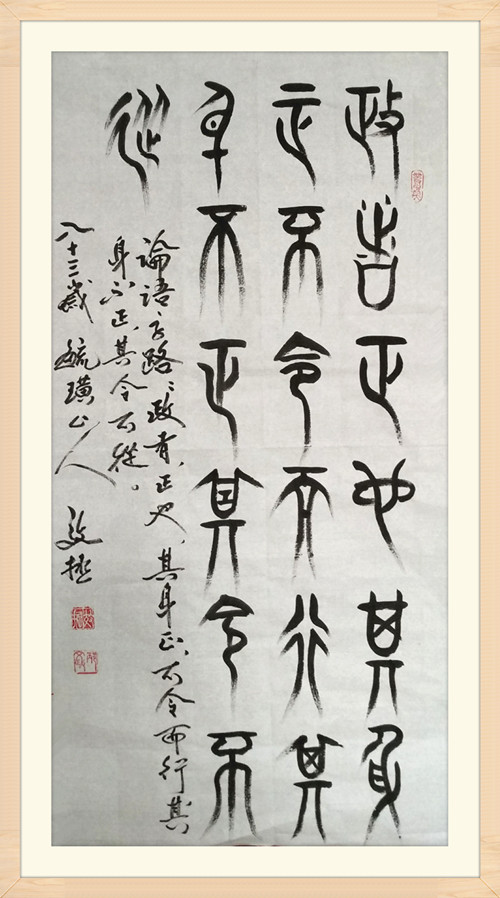 政者正也其身
正不令而行其
身不正其令不
從
論語子路:政者,正也,其身正,不令而行其
身不正,其令不從。
八十三歲 毓璜山人